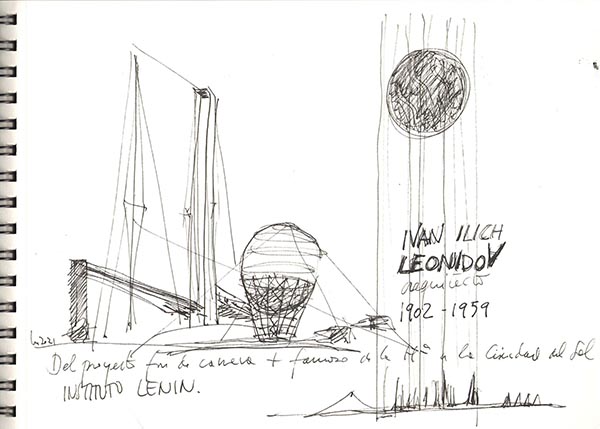 IVAN ILICH
LEONIDOV
arquitecto
1902 - 1959
Del proyecto fin de carrera + famoso de la Hª a la Ciudad del Sol
INSTITUTO LENIN.